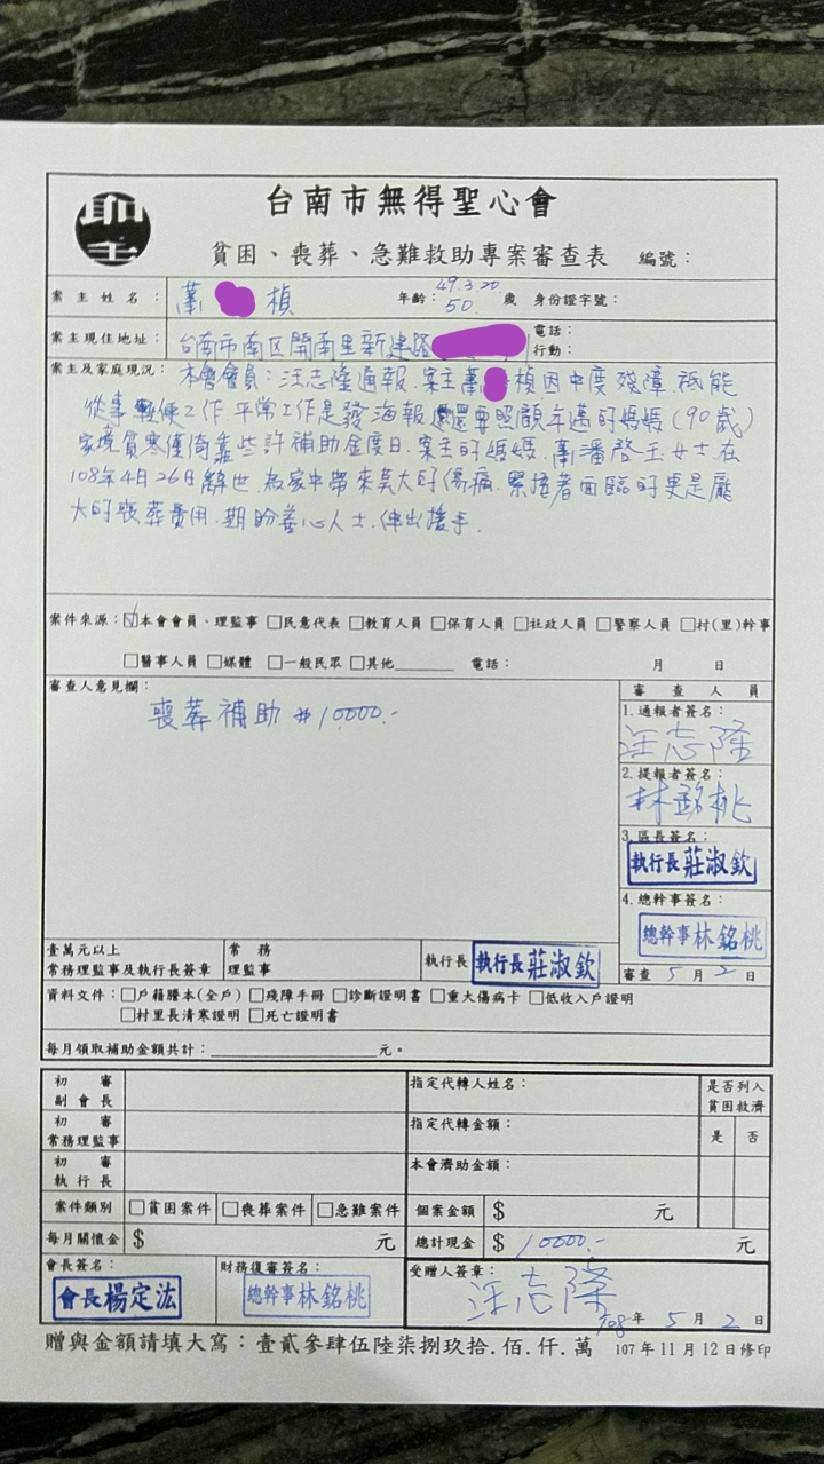 台南市無得聖心會
貧困、喪葬、急難救助專案審查表 編號：
案主姓名： 蕭 楨 年齡： 49.3.20 50. 歲 身份證字號：
案主現住地址： 台南市南区開南里新建路 電話：
行動：
案主及家庭現況： 本會會員：汪志隆通報.案主蕭 楨因中度殘障.祗能
從事輕便工作.平常工作是發海報.還要照顧年邁的媽媽(90歲)
家境貧寒僅倚靠些許補助金度日.案主的媽媽.蕭潘啓玉女士.在
108年4月26日辭世.為家中帶來莫大的傷痛.緊接著面臨的更是龐
大的喪葬費用.期盼善心人士.伸出援手.
案件來源：☑本會會員、理監事 □民意代表 □教育人員 □保育人員 □社政人員 □警察人員 □村(里)幹事
□醫事人員 □媒體 □一般民眾 □其他 電話： 月 日
審查人意見欄： 審查人員
喪葬補助 #10000.-
1.通報者簽名：
汪志隆
2.提報者簽名：
林銘桃
3.區長簽名：
執行長莊淑欽
4.總幹事簽名：
總幹事林銘桃
審查 5 月 2 日
壹萬元以上
常務理監事及執行長簽章
常務
理監事
執行長 執行長莊淑欽
資料文件：□戶籍謄本(全戶) □殘障手冊 □診斷證明書 □重大傷病卡 □低收入戶證明
□村里長清寒證明 □死亡證明書
每月領取補助金額共計： 元。
初審
副會長
指定代轉人姓名：
是否列入
貧困救濟
初審
常務理監事
指定代轉金額：
是 否
初審
執行長
本會濟助金額：
案件類別 □貧困案件 □喪葬案件 □急難案件 個案金額 $ 元
每月關懷金 $ 元 總計現金 $ 10000.- 元
會長簽名： 財務復審簽名： 受贈人簽章：
會長楊定法 總幹事林銘桃 汪志隆
108年 5 月 2 日
贈與金額請填大寫：壹貳參肆伍陸柒捌玖拾.佰.仟.萬 107年11月12日修印